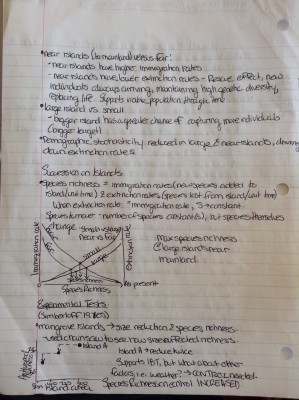 • near islands (to mainland) versus far:
- near islands have higher immigration rates
- near islands have lower extinction rates - Rescue effect, new
individuals always arriving, maintaining high genetic diversity,
replacing life. Supports viable population through time
• large island vs small
- bigger island has a greater chance of capturing more individuals
(bigger target)
• Demographic stochasticity reduced in large & near islands, driving
down extinction rates
Succession on Islands
• Species richness = immigration rates (new species added to
island/unit time) & extinction rates (species lost from island/unit time)
When extinction rate = immigration rate, S → constant.
Species turnover - number of species constant, but species themselves
change
small island
near vs far
Immigration rate
near
far
small
large
extinction rate
Species Richness
max species richness
@ large islands near
mainland
Experimental Tests
(Simberloff 1976)
• mangrove islands → size reduction & species richness.
used chainsaw to see how size affected richness.
Island A
Island A → reduce twice
Supports IBT, but what about other
factors, i.e. weather? → CONTROL needed
Island area
Species Richness on control INCREASED